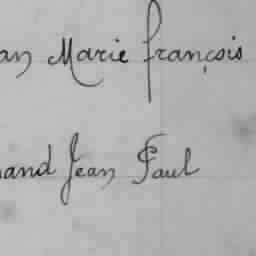 an Marie françois
and Jean Paul